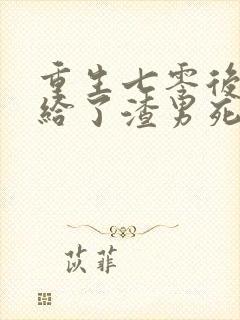 重生七零後
給了渣男死
苡菲